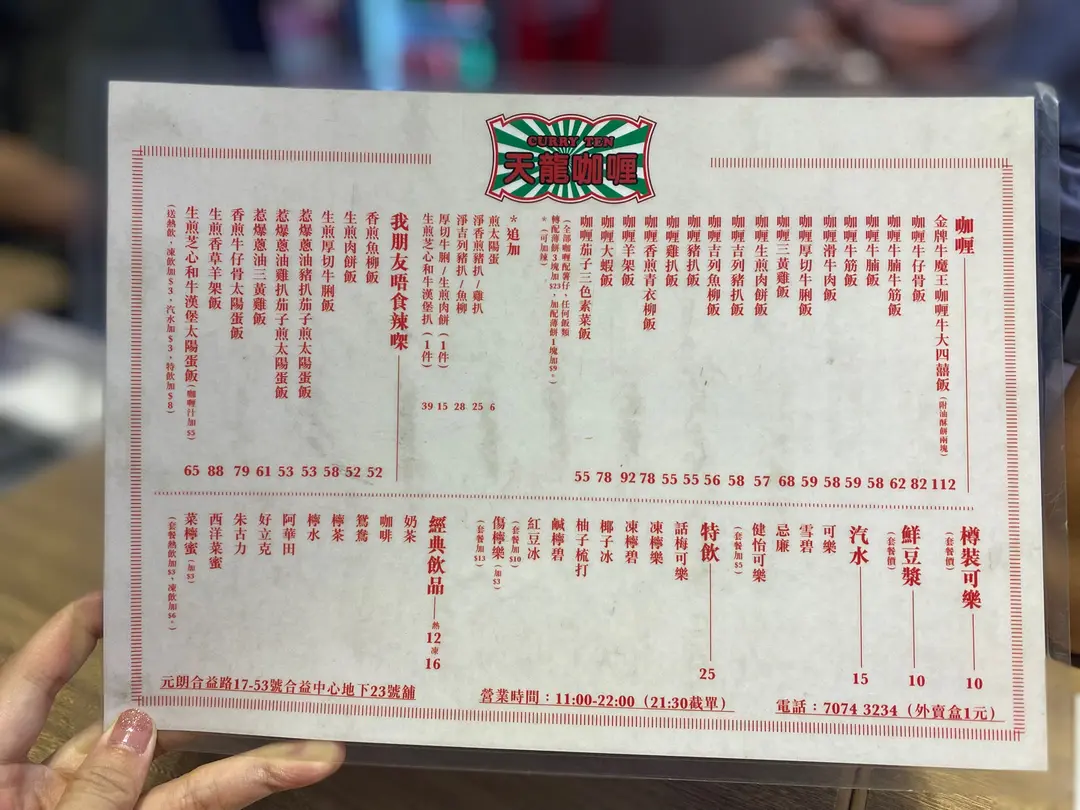 CURRY TEN
天龍咖喱
咖喱
金牌牛魔王咖喱牛大四囍飯(附油酥餅兩塊) 112
咖喱牛仔骨飯 82
咖喱牛腩牛筋飯 62
咖喱牛腩飯 58
咖喱牛筋飯 59
咖喱滑牛肉飯 58
咖喱厚切牛脷飯 59
咖喱三黃雞飯 68
咖喱生煎肉餅飯 57
咖喱吉列豬扒飯 58
咖喱吉列魚柳飯 56
咖喱豬扒飯 55
咖喱雞扒飯 55
咖喱香煎青衣柳飯 78
咖喱羊架飯 92
咖喱大蝦飯 78
咖喱茄子三色素菜飯 55
(全部咖喱配薯仔、任何飯類
轉配薄餅3塊加$23，加配薄餅1塊加$9。
*(可加辣)
*追加
煎太陽蛋 6
淨香煎豬扒/雞扒 25
淨吉列豬扒/魚柳 28
厚切牛脷/生煎肉餅(1件) 15
生煎芝心和牛漢堡扒(1件) 39
我朋友唔食辣㗎
香煎魚柳飯 52
生煎肉餅飯 52
生煎厚切牛脷飯 58
惹爆蔥油豬扒茄子煎太陽蛋飯 53
惹爆蔥油雞扒茄子煎太陽蛋飯 53
惹爆蔥油三黃雞飯 61
香煎牛仔骨太陽蛋飯 79
生煎香草羊架飯 88
生煎芝心和牛漢堡太陽蛋飯(咖喱汁加$5) 65
(送熱飲，凍飲加$3，汽水加$3，特飲加$8)
樽裝可樂 10
(套餐價)
鮮豆漿 10
(套餐價)
汽水 15
可樂
雪碧
忌廉
健怡可樂
(套餐加$5)
特飲 25
話梅可樂
凍檸樂
凍檸碧
柚子梳打
椰子冰
鹹檸碧
紅豆冰
(套餐加$10)
傷檸樂(加$3)
(套餐加$13)
經典飲品 熱12 凍16
奶茶
咖啡
鴛鴦
檸茶
檸水
阿華田
好立克
朱古力
西洋菜蜜
菜檸蜜(加$3)
(套餐熱飲加$3、凍飲加$6。)
元朗合益路17-53號合益中心地下23號舖
營業時間：11:00-22:00（21:30截單）
電話：7074 3234（外賣盒1元）